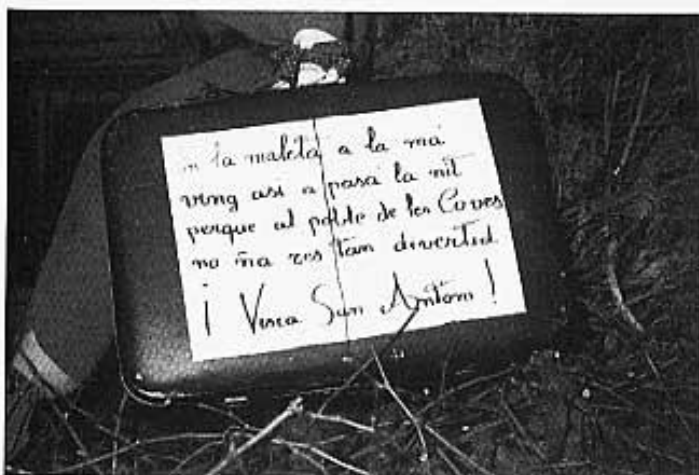 ... la maleta a la má
ving así a pasá la nit
perque al poble de les Coves
no ña res tan divertid
¡ Visca San Antoni !